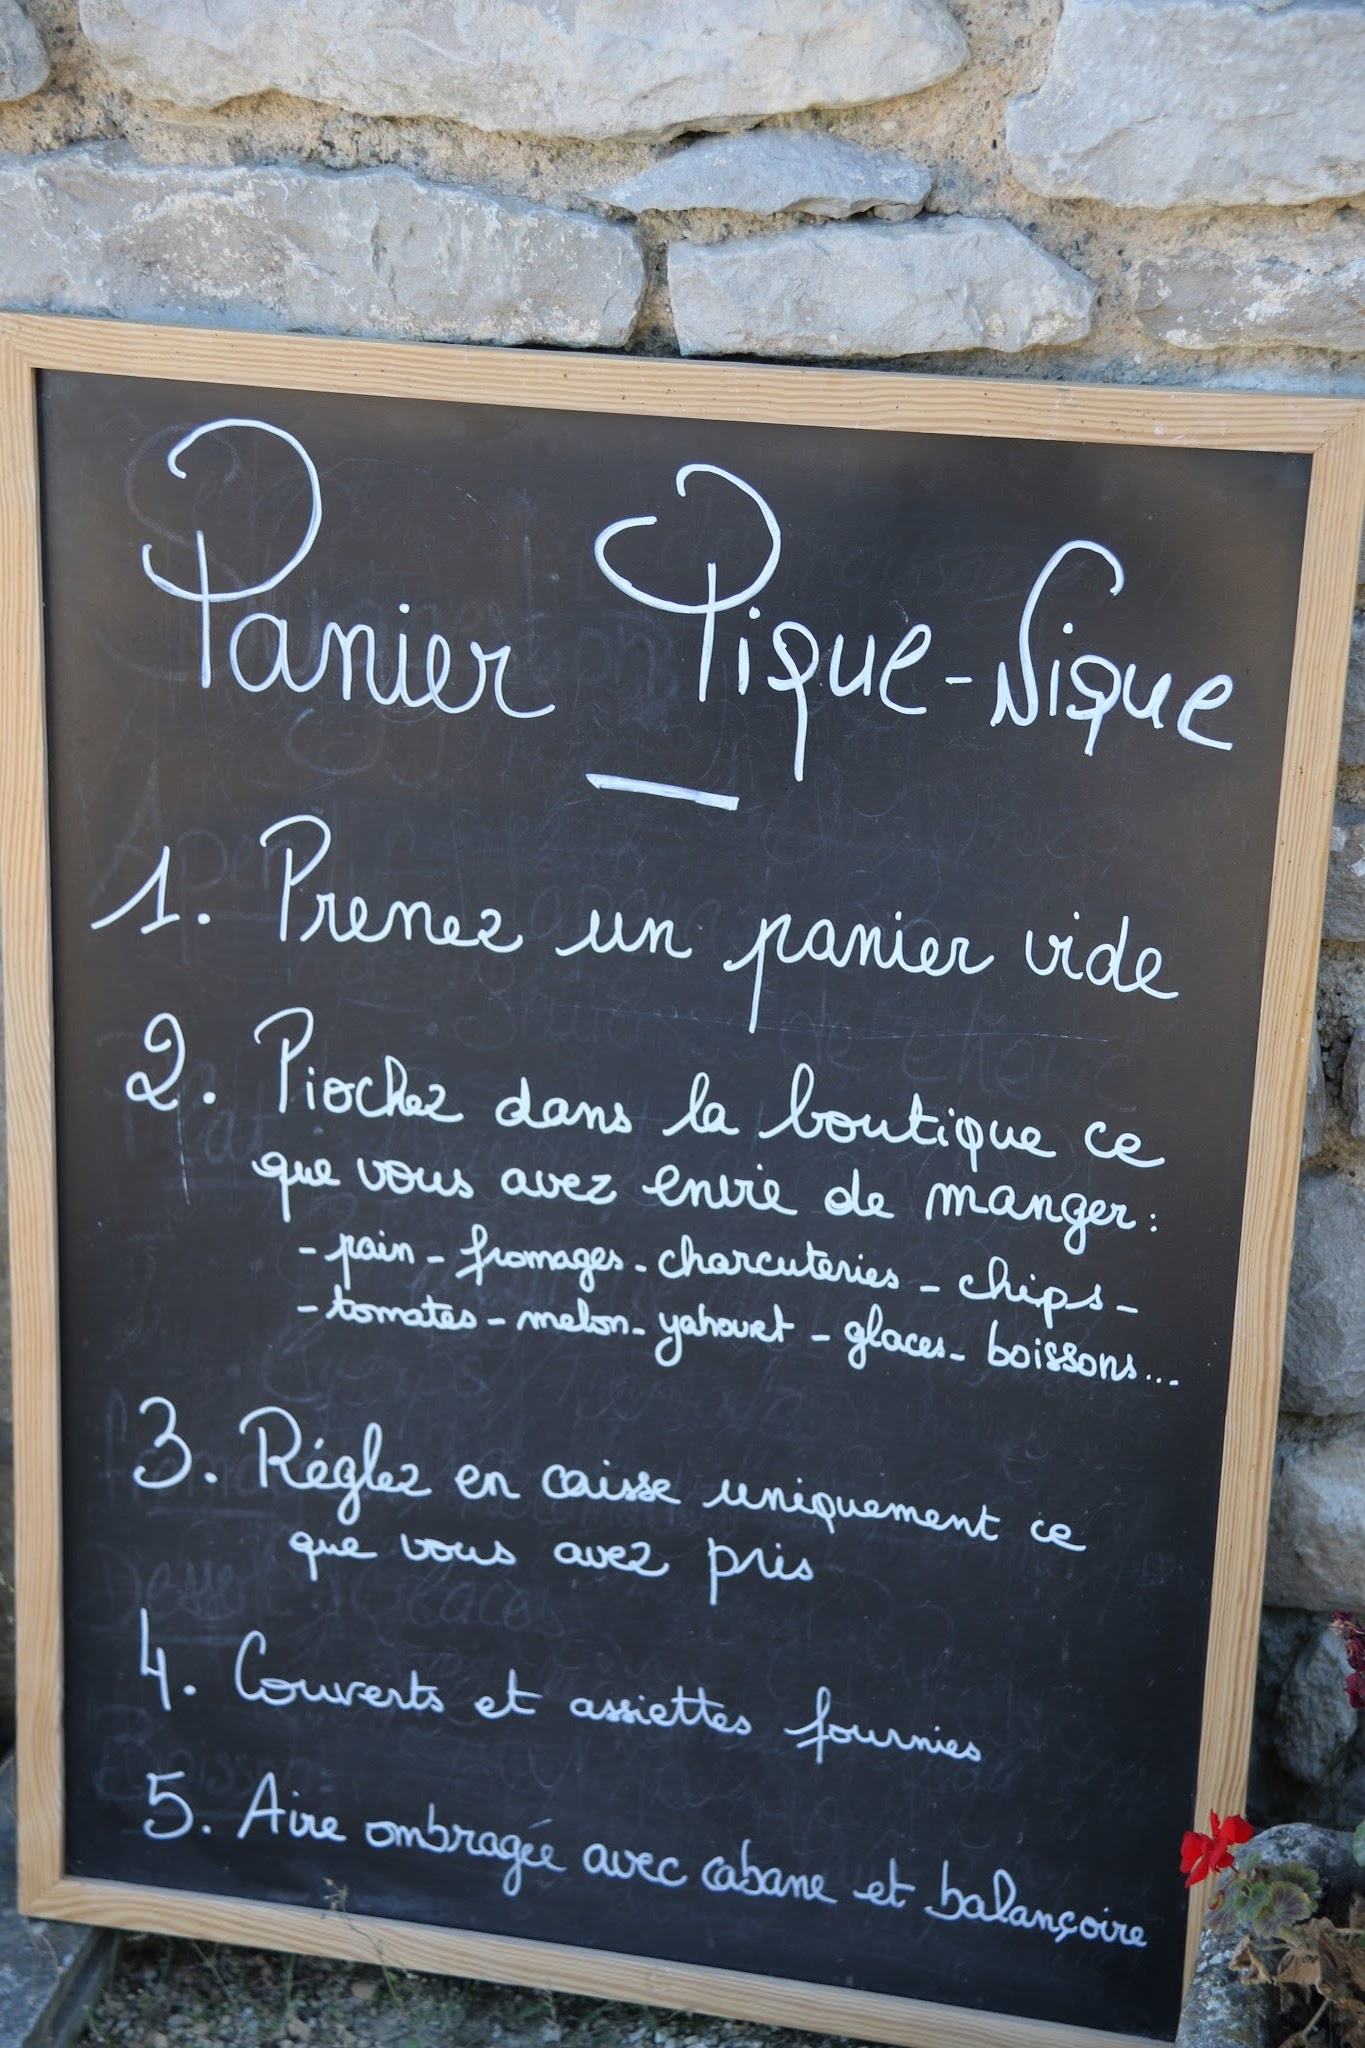 Panier Pique-Nique
1. Prenez un panier vide
2. Piochez dans la boutique ce
que vous avez envie de manger:
- pain - fromages - charcuteries - chips -
- tomates - melon - yahourt - glaces - boissons...
3. Réglez en caisse uniquement ce
que vous avez pris
4. Couverts et assiettes fournies
5. Aire ombragée avec cabane et balançoire